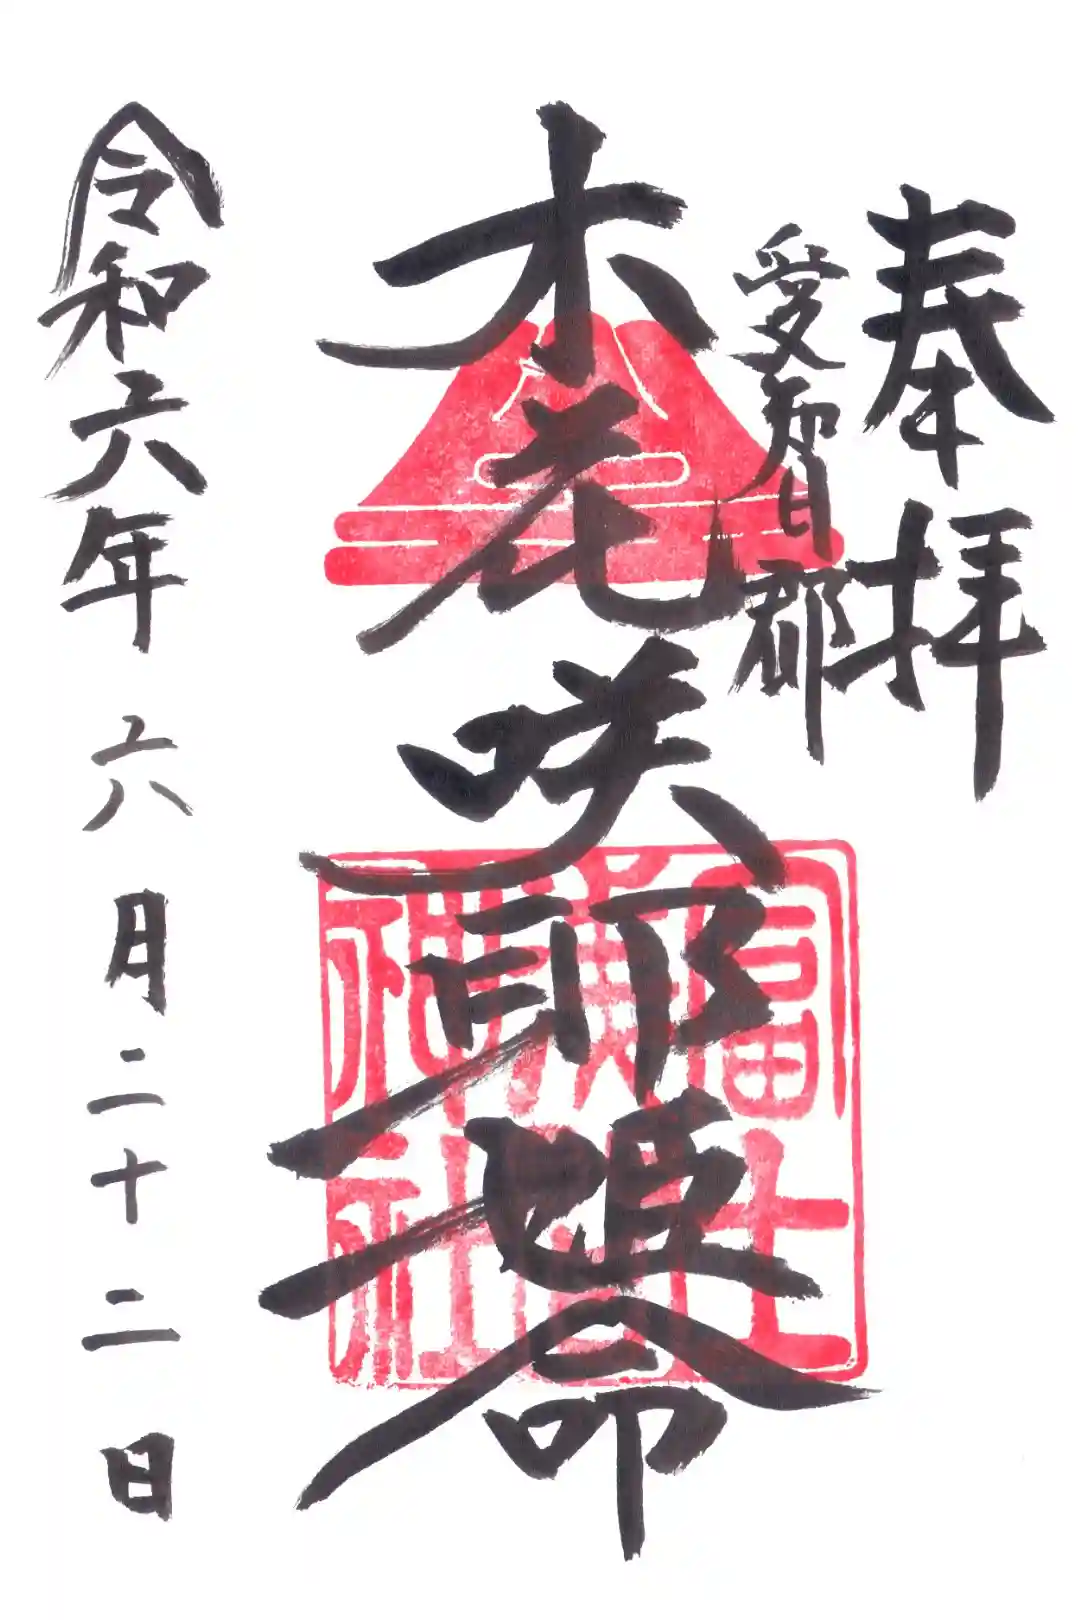 奉拝
愛智郡
木花咲耶姫命
富士
神社
令和六年六月二十二日